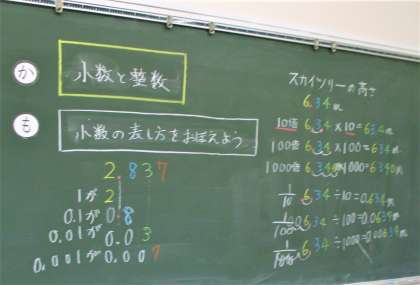 か
小数と整数
も
小数の表し方をおぼえよう
2.837
1が2
0.1が0.8
0.01が0.03
0.001が0.007
スカイツリーの高さ
6.34m
10倍 6.34×10=63.4m
100倍 6.34×100=634m
1000倍 6.34×1000=6340m
1/10 6.34÷10=0.634
1/100 6.34÷100=0.0634
1/1000 6.34÷1000=0.00634